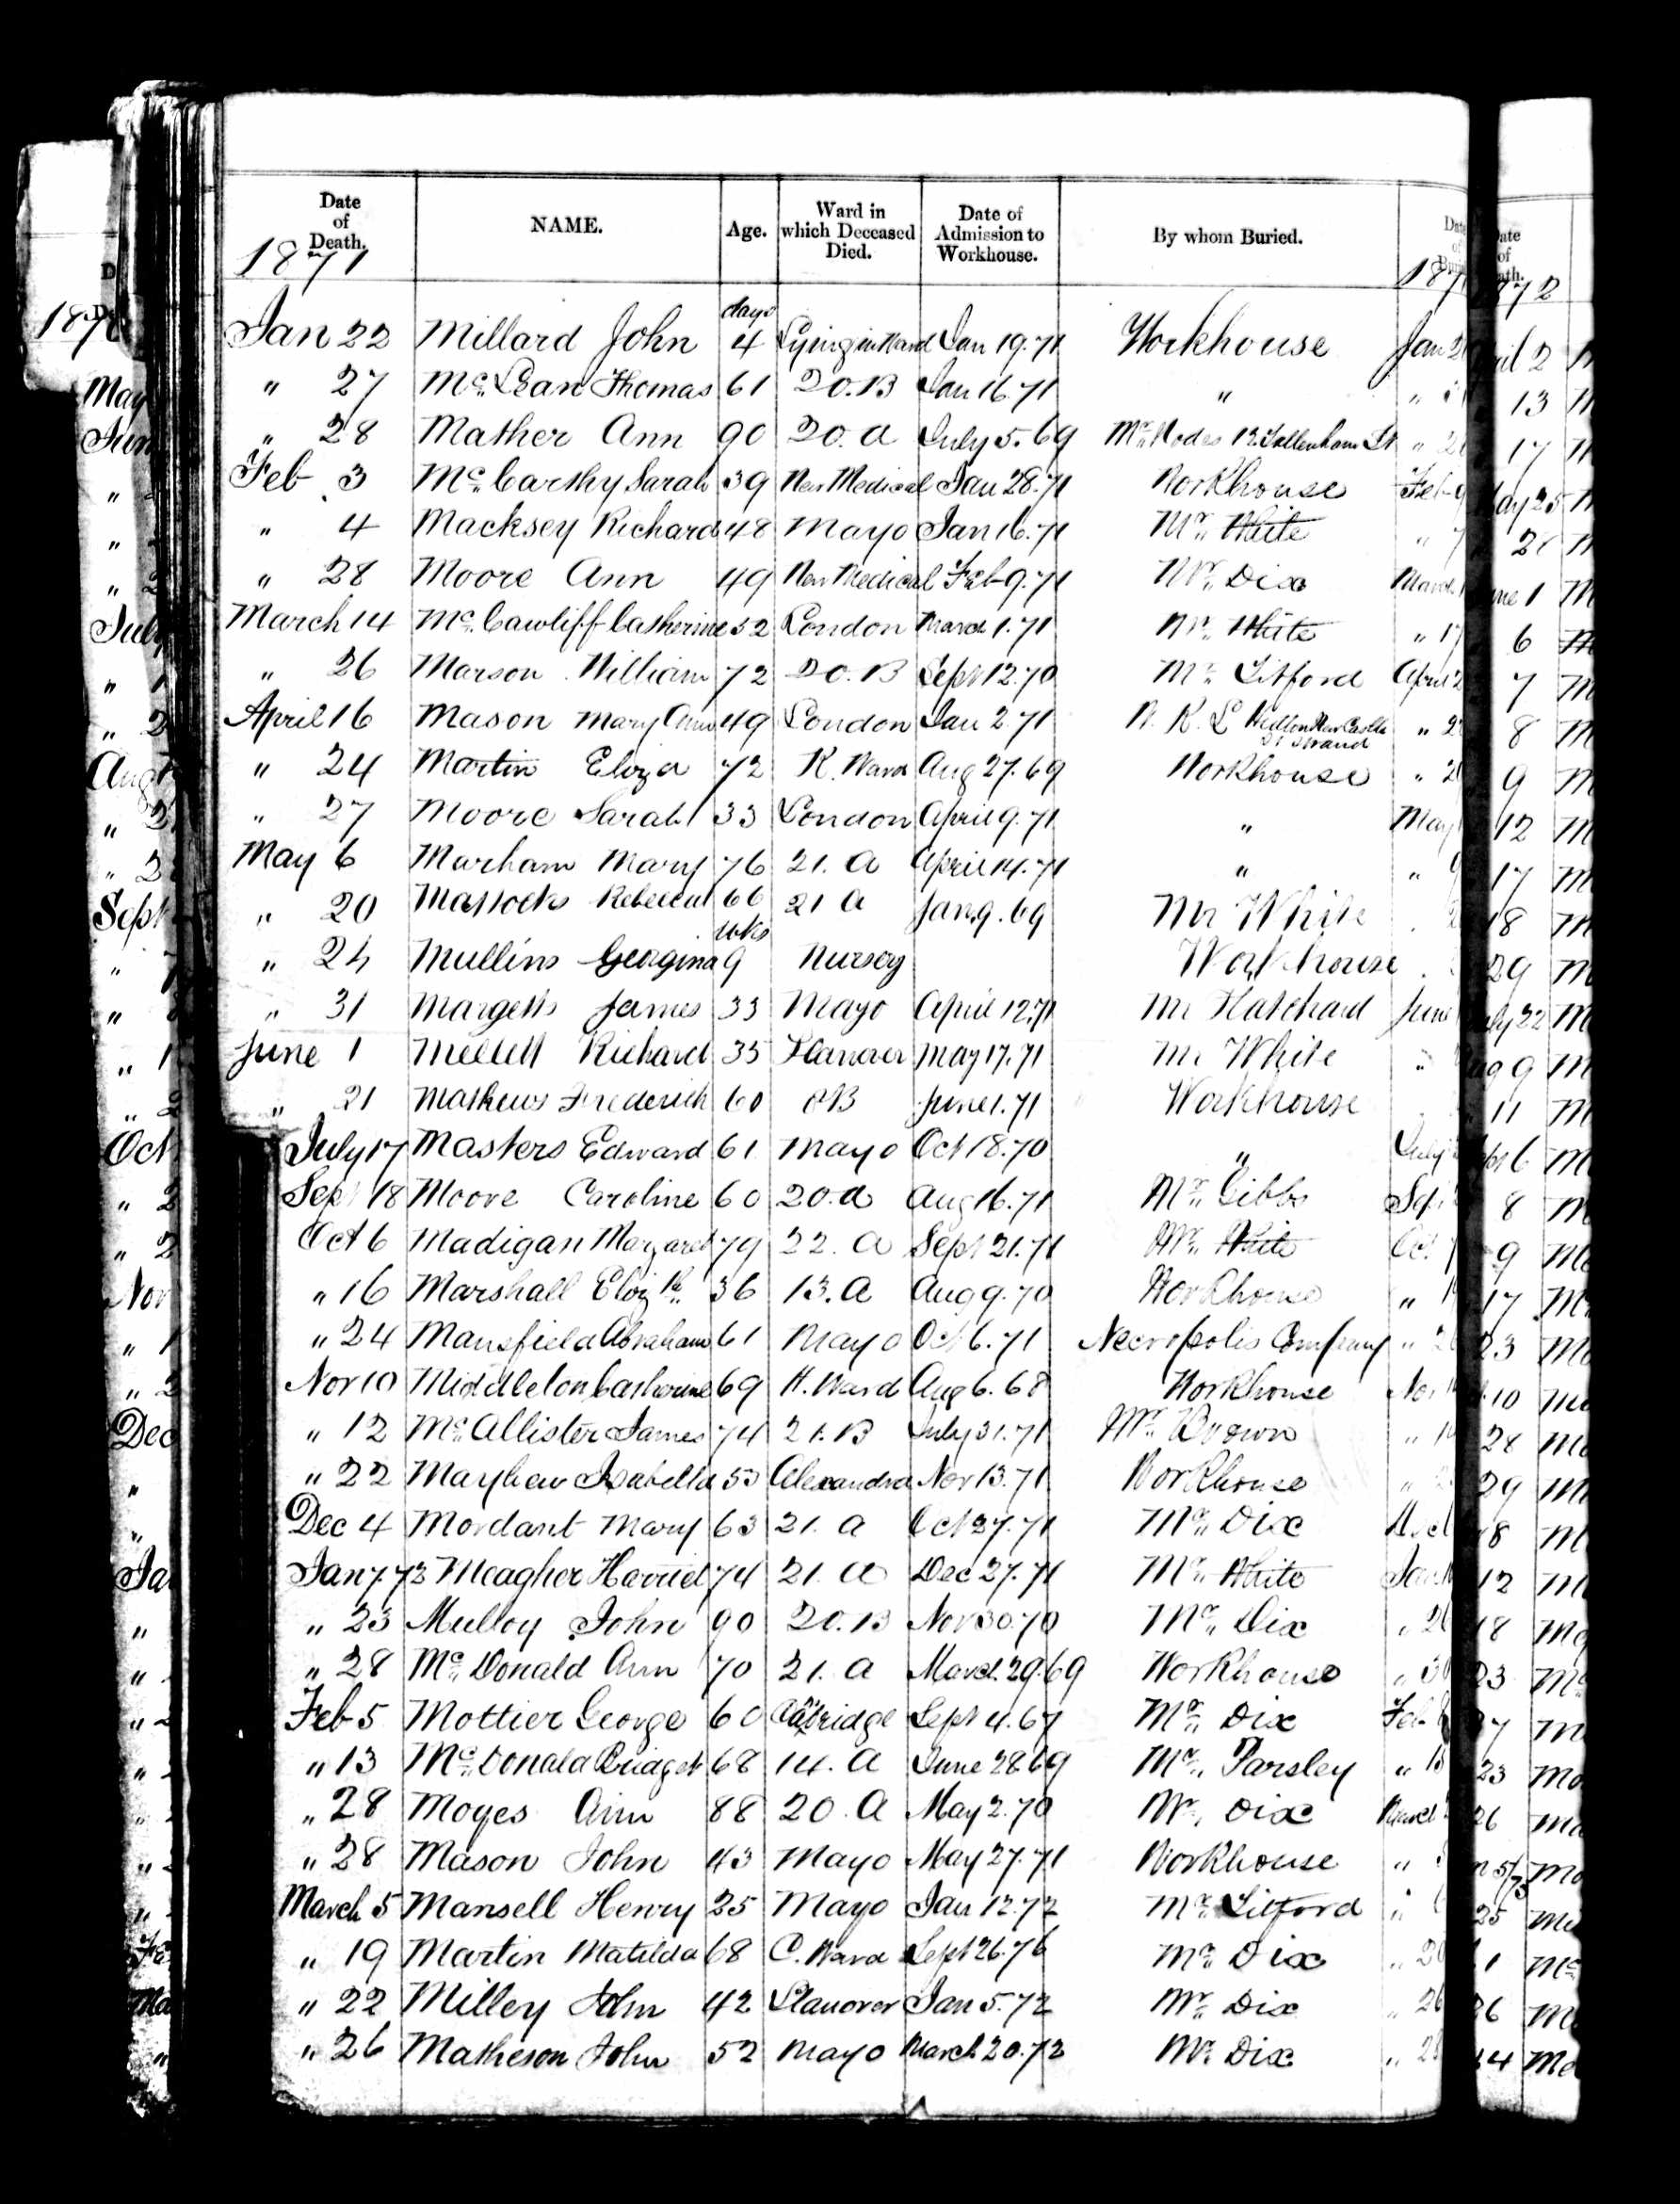 Date of Death. NAME. Age. Ward in which Deceased Died. Date of Admission to Workhouse. By whom Buried.
1871
days
Jan 22 Millard John 4 Lying in Ward Jan 19.71 Workhouse Jan
" 27 Mc. Lean Thomas 61 20.B Jan 16.71 "
" 28 Mather Ann 90 20.a July 5.69 Mr. 12 Tottenham St "
Feb 3 Mc. Carthy Sarah 39 New Medical Jan 28.71 Workhouse Feb 9
" 4 Macksey Richard 48 Mayo Jan 16.71 Mr. White " 7
" 28 Moore Ann 49 New Medical Feb 9.71 Mr. Dix March
March 14 Mc. Cawliff Catherine 52 London March 1.71 Mr. White " 17
" 26 Marson William 72 20.B Sept 12.70 Mr. Litford April 2
April 16 Mason Mary Ann 49 London Jan 2.71 New Castle St Strand "
" 24 Martin Eliza 72 K. Ward Aug 27.69 Workhouse "
" 27 Moore Sarah 33 London April 9.71 " May
May 6 Marham Mary 76 21. a April 14.71 " "
" 20 Rebecca 66 21 a Jan 9.69 Mr White
wks
" 24 Mullins Georgina 9 Nursery Workhouse
" 31 Margetts James 33 Mayo April 12.71 Mr Hatchard June
June 1 Richard 35 Llanover May 17.71 Mr White "
" 21 Mathews Frederick 60 June 1.71 Workhouse
July 17 Masters Edward 61 Mayo Oct 18.70 " July
Sept 18 Moore Caroline 60 20.a Aug 16.71 Mr. Gibbs Sept
Oct 6 Madigan Margaret 79 22. a Sept 21.71 Mr. White Oct
" 16 Marshall Elizth. 36 13. a Aug 9.70 Workhouse "
" 24 Mansfield Abraham 61 Mayo Oct 6.71 Necropolis Company "
Nov 10 Middleton Catherine 69 H. Ward Aug 6.68 Workhouse Nov
" 12 Mc. Allister James 74 21.B July 31.71 Mr. Brown "
" 22 Mayhew Isabella 53 Alexandra Nov 13.71 Workhouse "
Dec 4 Mordant Mary 63 21. a Oct 27.71 Mr. Dix Dec
Jan 7.72 Meagher Harriet 74 21. a Dec 27.71 Mr. White Jan
" 23 Mulloy John 90 20.B Nov 30.70 Mr. Dix "
" 28 Mc. Donald Ann 70 21. a March 29.69 Workhouse "
Feb 5 Mottier George 60 Sept 4.67 Mr. Dix Feb
" 13 Mc. Donald Bridget 68 14. a June 28.69 Mr. Parsley "
" 28 Moyes Ann 88 20. a May 2.70 Mr. Dix March
" 28 Mason John 43 Mayo May 27.71 Workhouse "
March 5 Mansell Henry 25 Mayo Jan 12.72 Mr. Litford "
" 19 Martin Matilda 68 C. Ward Sept 26.76 Mr. Dix "
" 22 Milley John 42 Llanover Jan 5.72 Mr. Dix " 26
" 26 Matheson John 52 Mayo March 20.72 Mr. Dix "